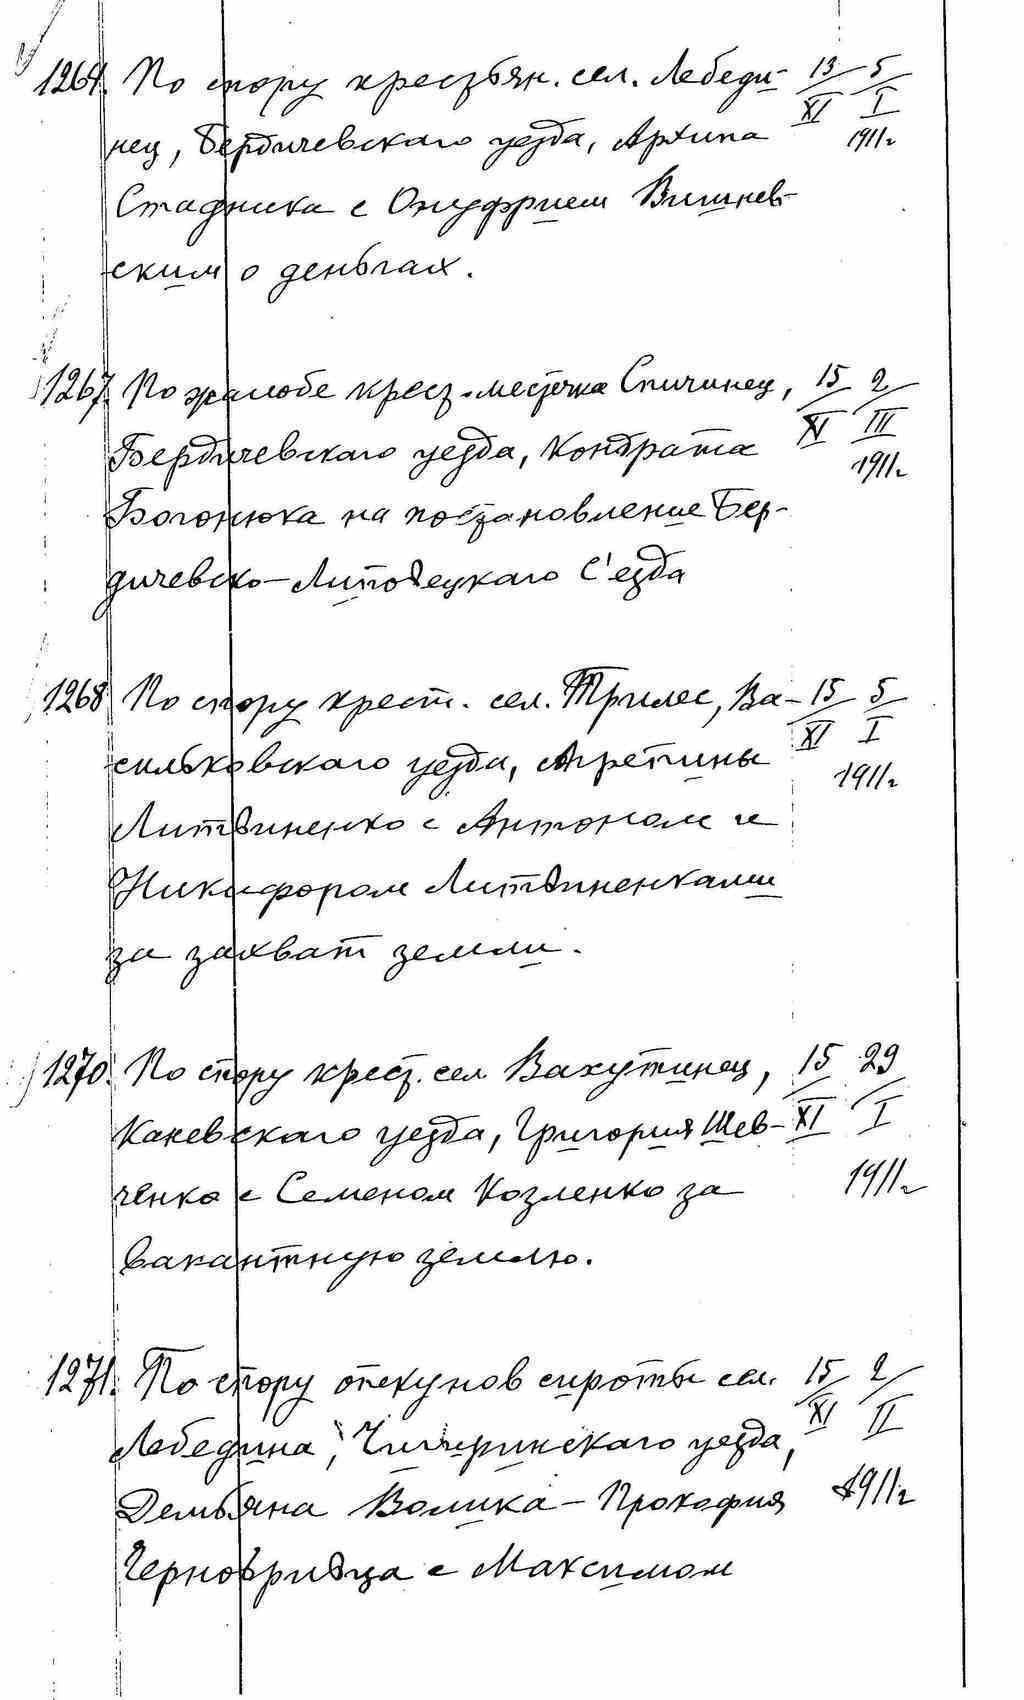 1264. По спору крестьян. сел. Лебеди- 13/XI 5/I
нец, Бердичевскаго уезда, Архипа 1911г
Стадника с Онуфрием Вишнев-
ским о деньгах.
1267. По жалобе крест. местечка Спичинец, 15/XI 2/III
Бердичевскаго уезда, Кондрата 1911г
Богонюка на постановление Бер-
дичевско-Липовецкаго С'езда
1268 По спору крест. сел. Трилес, Ва- 15/XI 5/I
сильковскаго уезда, Агрепины 1911г
Литвиненко с Антоном и
Никифором Литвиненками
за захват земли.
1270. По спору крест. сел Вахутинец, 15/XI 29/I
Каневскаго уезда, Григория Шев-
ченко с Семеном Козленко за 1911г
вакантную землю.
1271. По спору опекунов сироты сел. 15/XI 2/II
Лебедина, Чигиринскаго уезда,
Демьяна Волика - Прокофия 1911г
Чернобривца с Максимом